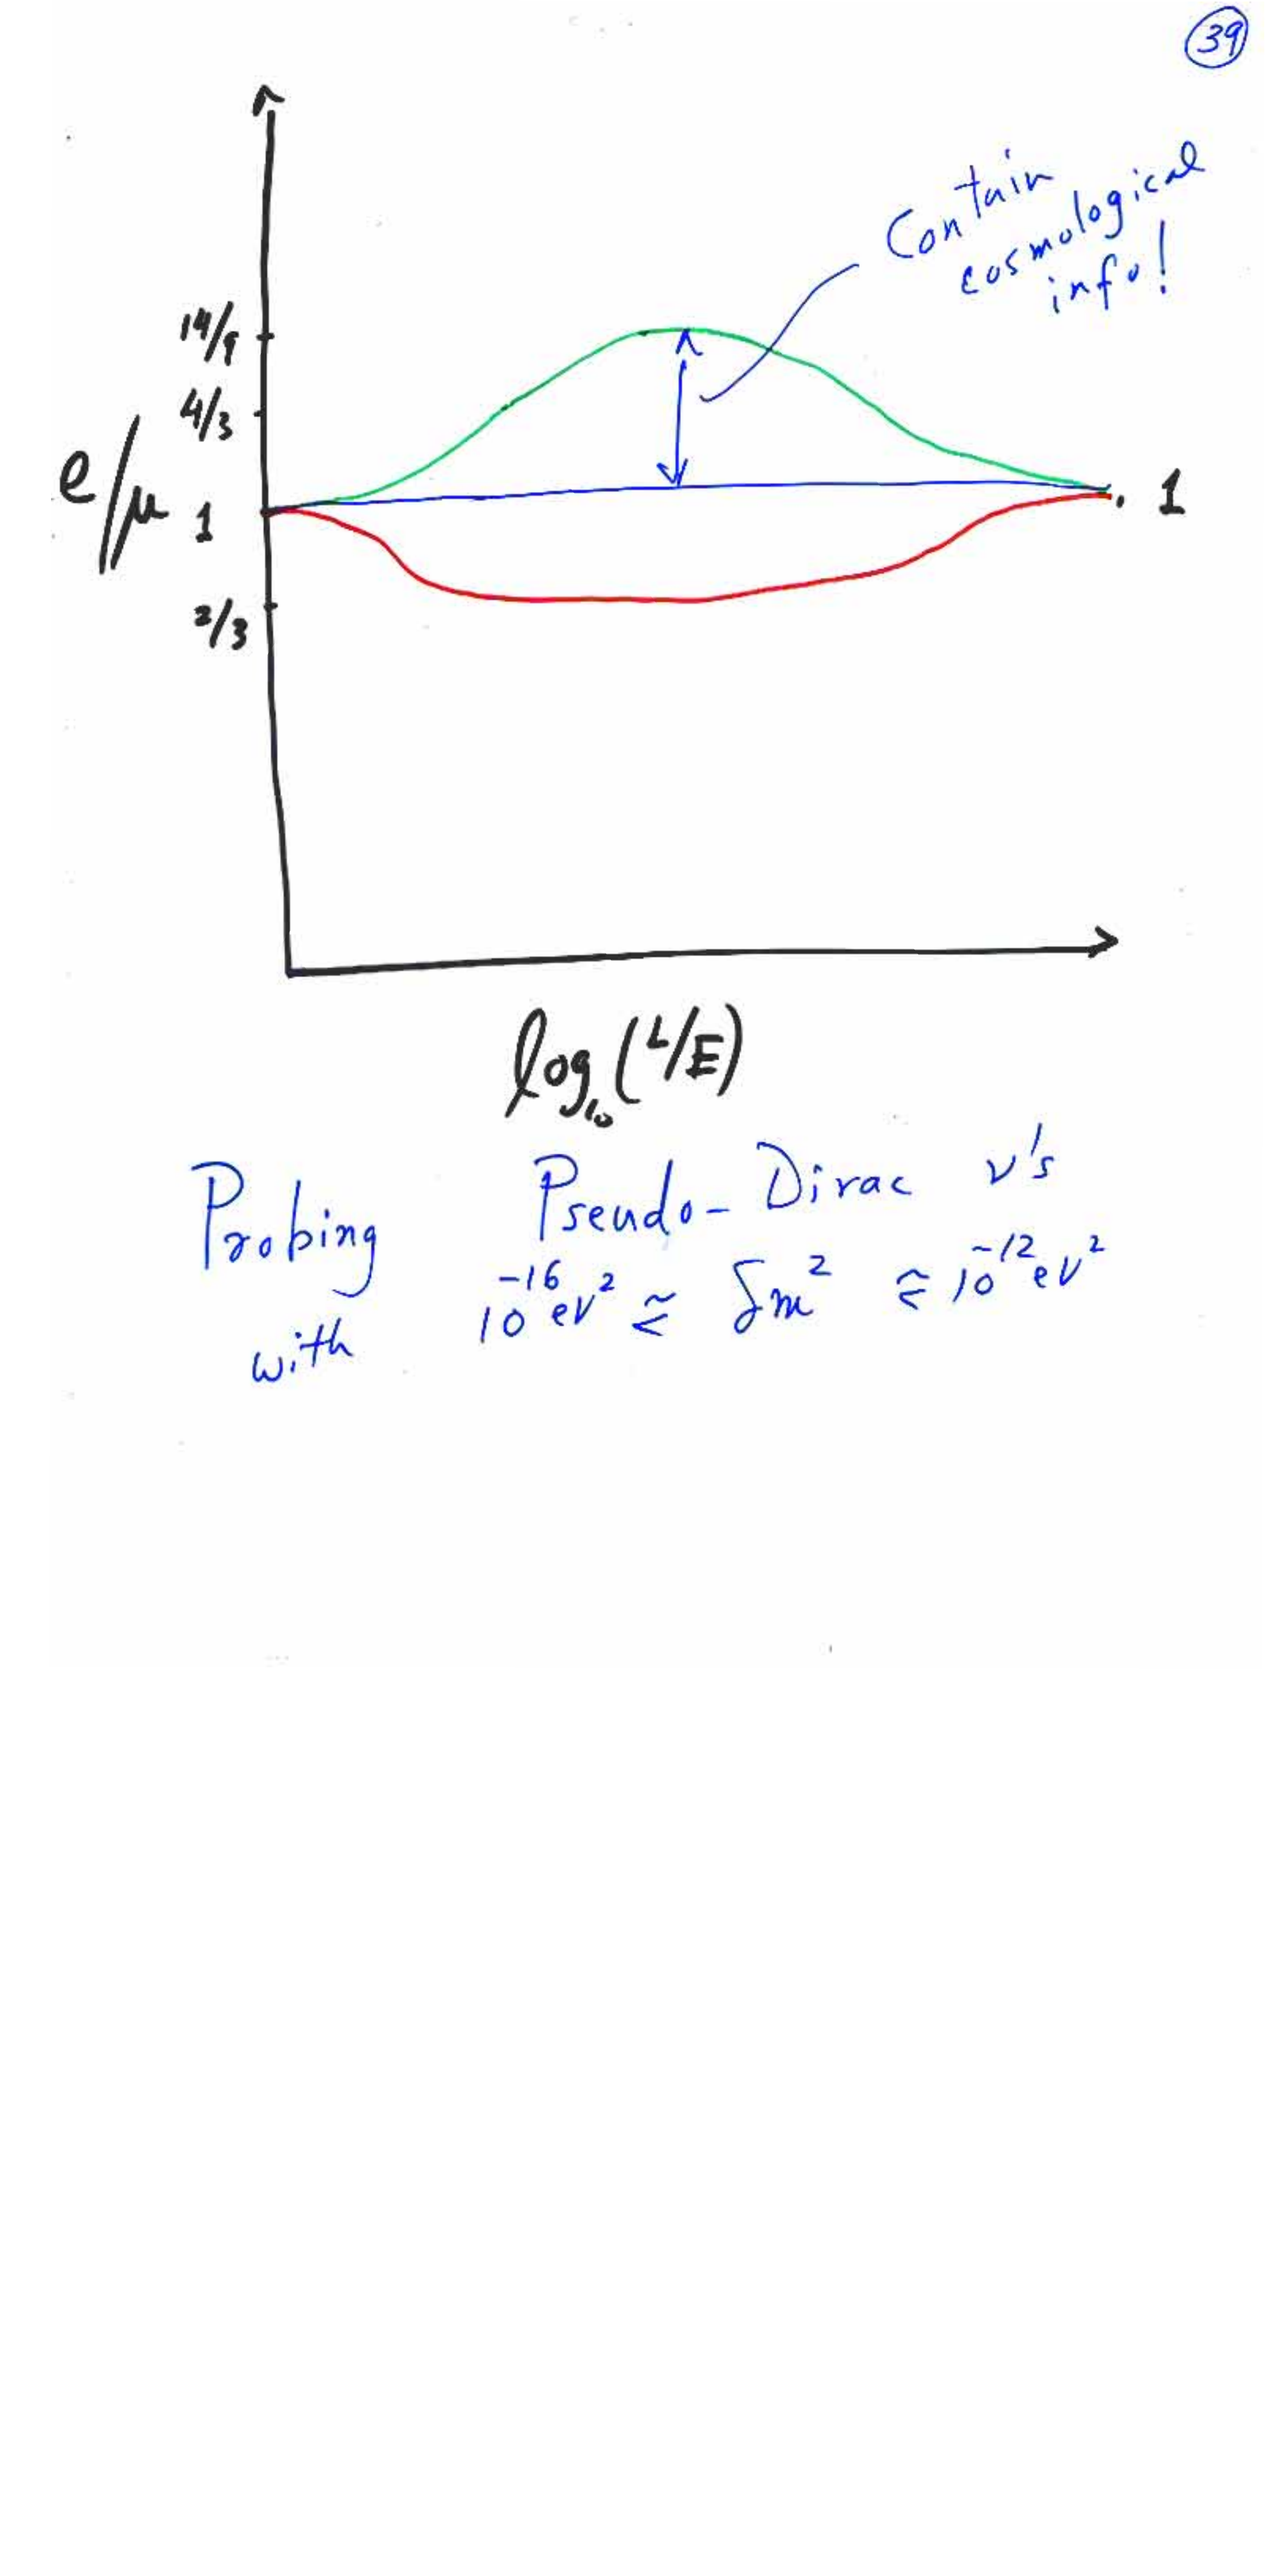 39
Contain
cosmological
info!
14/9
4/3
e/μ
1
1
2/3
log₁₀(L/E)
Probing Pseudo-Dirac ν's
with 10⁻¹⁶eV² ≲ δm² ≲ 10⁻¹²eV²